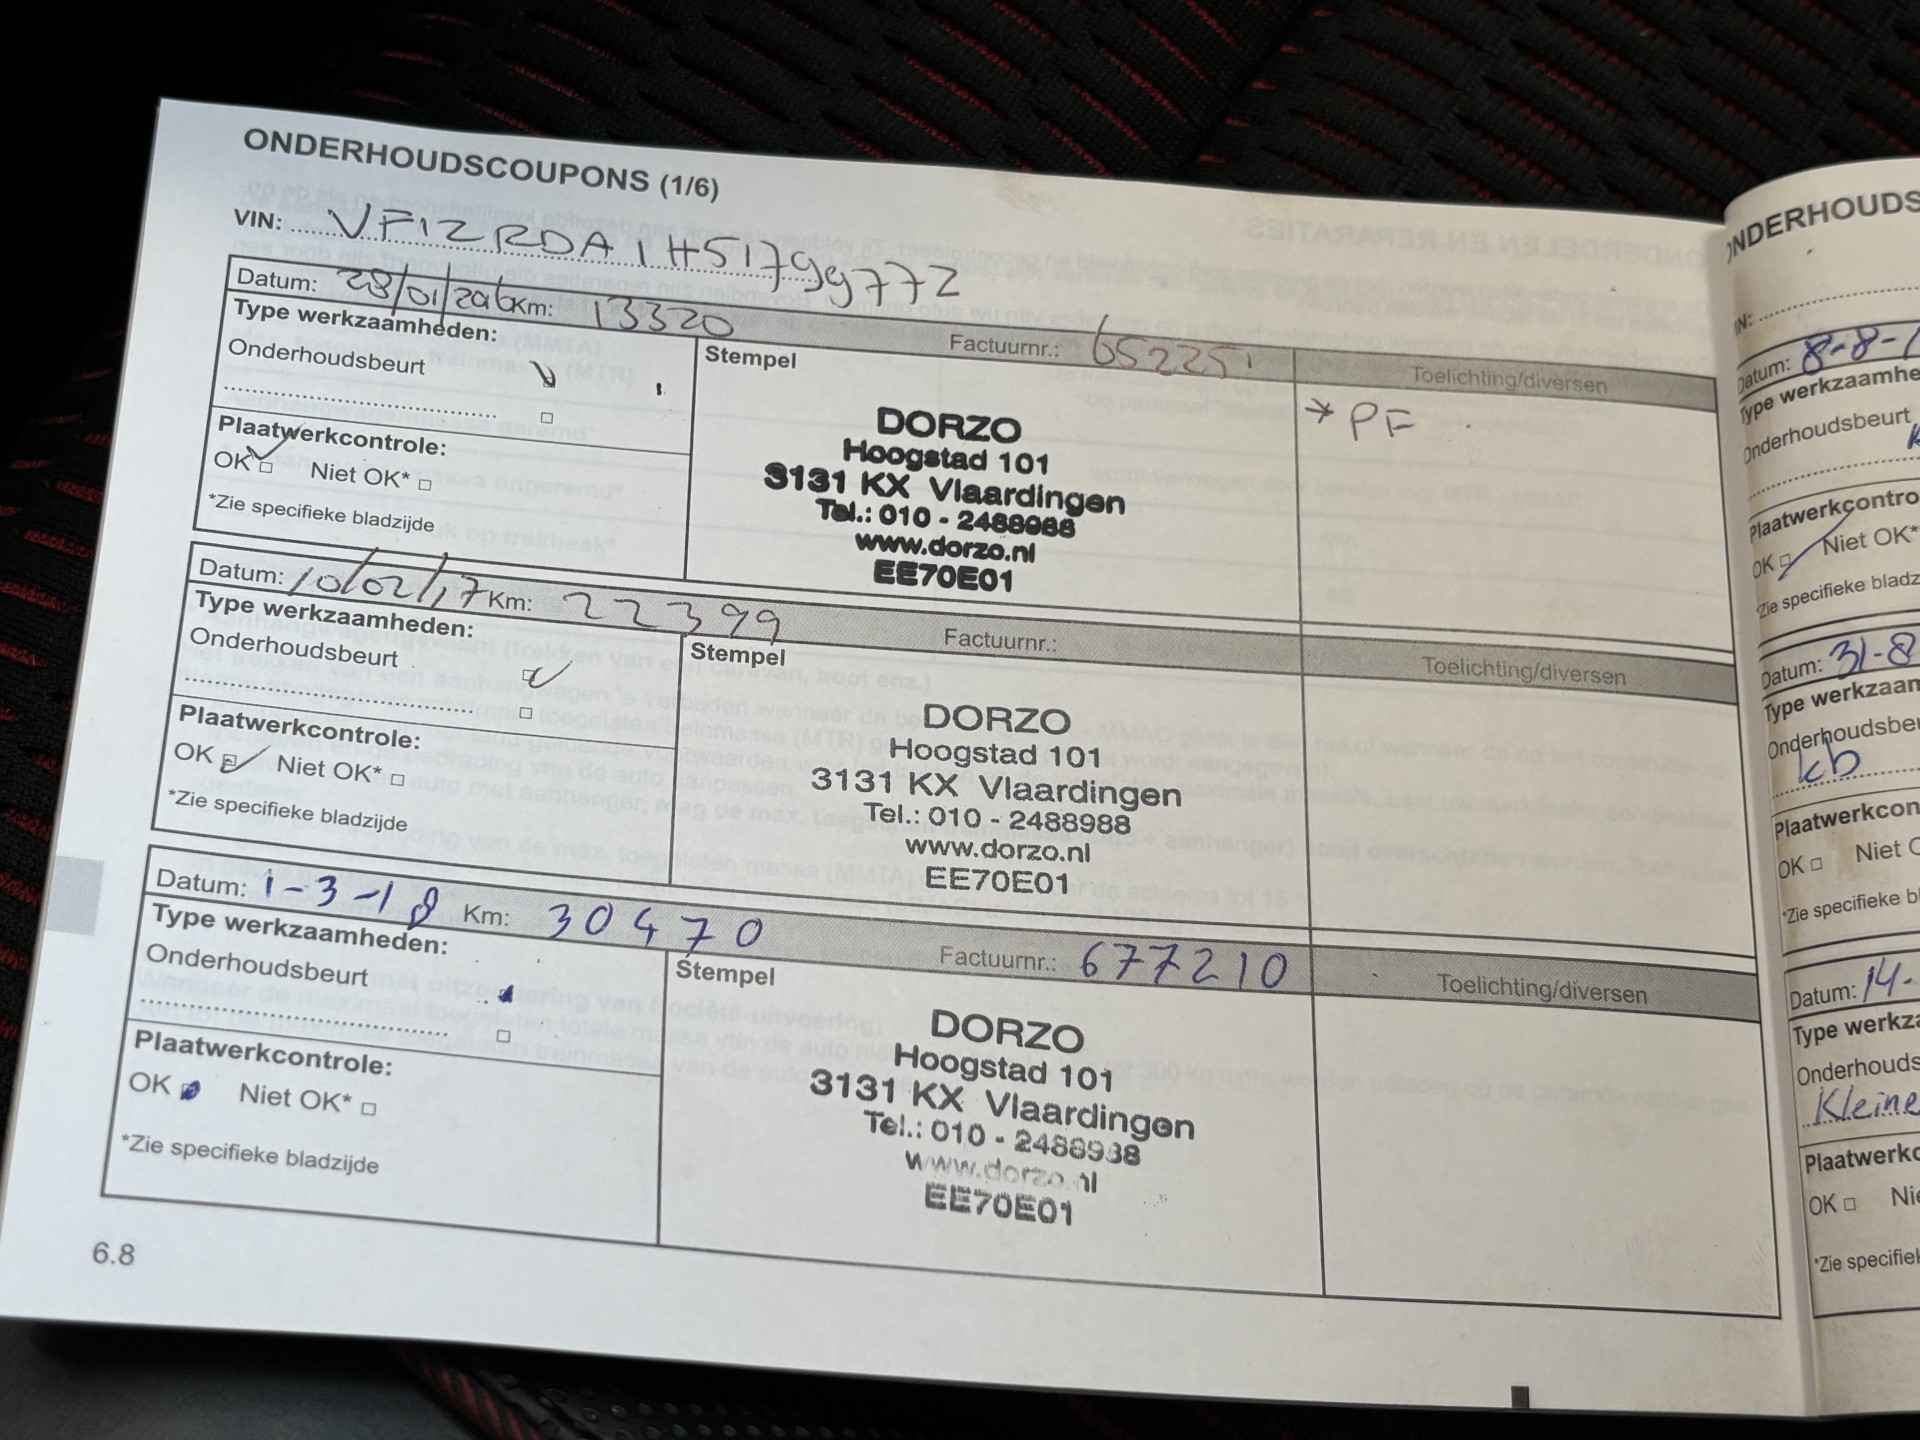 ONDERHOUDSCOUPONS (1/6)
VIN: VF12RDA1H51799772
Datum: 28/01/2016 Km: 13320 Factuurnr.: 652251 Toelichting/diversen
Type werkzaamheden:
Onderhoudsbeurt
Stempel
Plaatwerkcontrole:
OK Niet OK*
*Zie specifieke bladzijde
DORZO
Hoogstad 101
3131 KX Vlaardingen
Tel.: 010 - 2488988
www.dorzo.nl
EE70E01
→ PF
Datum: 10/02/17 Km: 22399 Factuurnr.: Toelichting/diversen
Type werkzaamheden:
Onderhoudsbeurt
Stempel
Plaatwerkcontrole:
OK Niet OK*
*Zie specifieke bladzijde
DORZO
Hoogstad 101
3131 KX Vlaardingen
Tel.: 010 - 2488988
www.dorzo.nl
EE70E01
Datum: 1-3-18 Km: 30470 Factuurnr.: 677210 Toelichting/diversen
Type werkzaamheden:
Onderhoudsbeurt
Stempel
Plaatwerkcontrole:
OK Niet OK*
*Zie specifieke bladzijde
DORZO
Hoogstad 101
3131 KX Vlaardingen
Tel.: 010 - 2488988
www.dorzo.nl
EE70E01
6.8
ONDERHOUDS
Datum: 8-8-1
Type werkzaamhe
Onderhoudsbeurt
Plaatwerkcontro
OK Niet OK*
*Zie specifieke bladz
Datum: 31-8
Type werkzaam
Onderhoudsbeu
kb
Plaatwerkcon
OK Niet O
*Zie specifieke bl
Datum: 14-
Type werkza
Onderhouds
Kleine
Plaatwerkc
OK Nie
*Zie specifiek